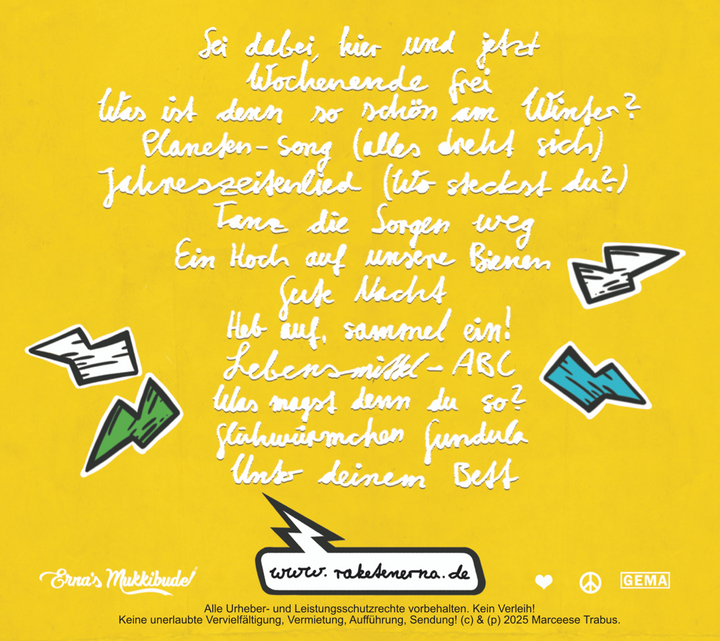 Sei dabei, hier und jetzt
Wochenende frei
Was ist denn so schön am Winter?
Planeten-Song (alles dreht sich)
Jahreszeitenlied (Wo steckst du?)
Tanz die Sorgen weg
Ein Hoch auf unsere Bienen
Gute Nacht
Heb auf, sammel ein!
Lebensmittel-ABC
Was magst denn du so?
Glühwürmchen Gundula
Unter deinem Bett
www.raketenerna.de
Erna's Mukkibude!
GEMA
Alle Urheber- und Leistungsschutzrechte vorbehalten. Kein Verleih!
Keine unerlaubte Vervielfältigung, Vermietung, Aufführung, Sendung! (c) & (p) 2025 Marceese Trabus.